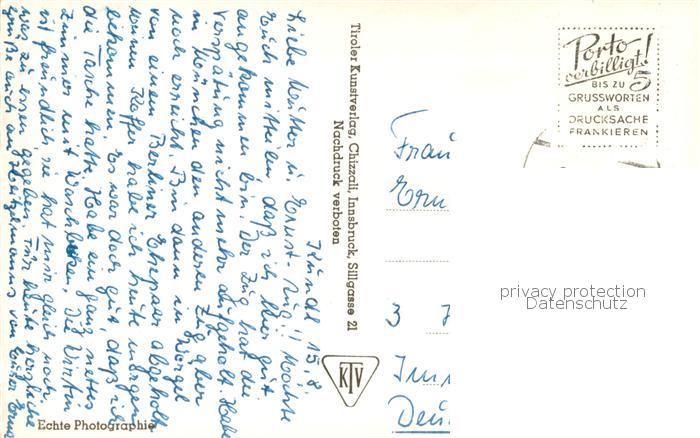 Kundl 15.8
Liebe Mutter u. Ernst-Jug!! Möchte
Euch mitteilen, daß ich hier gut
angekommen bin. Der Zug hat die
Verspätung nicht mehr aufgeholt. Habe
in München den anderen Zug aber
noch erreicht. Bin dann in Wörgel
von einem Berliner Ehepaar abgeholt
worden. Koffer habe ich heute morgen
bekommen. Es war doch gut, daß ich
die Tasche hatte. Habe ein ganz nettes
Zimmer mit Waschbecken. Die Wirtin
ist freundlich, sie hat mir gleich noch
was zu essen gegeben. Für heute herzliche
Grüße auch an von Eurer Erna
Tiroler Kunstverlag, Chizzali, Innsbruck, Sillgasse 21
Nachdruck verboten
KTV
Echte Photographie
Porto
verbilligt!
BIS ZU 5
GRUSSWORTEN
ALS
DRUCKSACHE
FRANKIEREN
Frau
Ern
3
Imm
Deu
privacy protection
Datenschutz